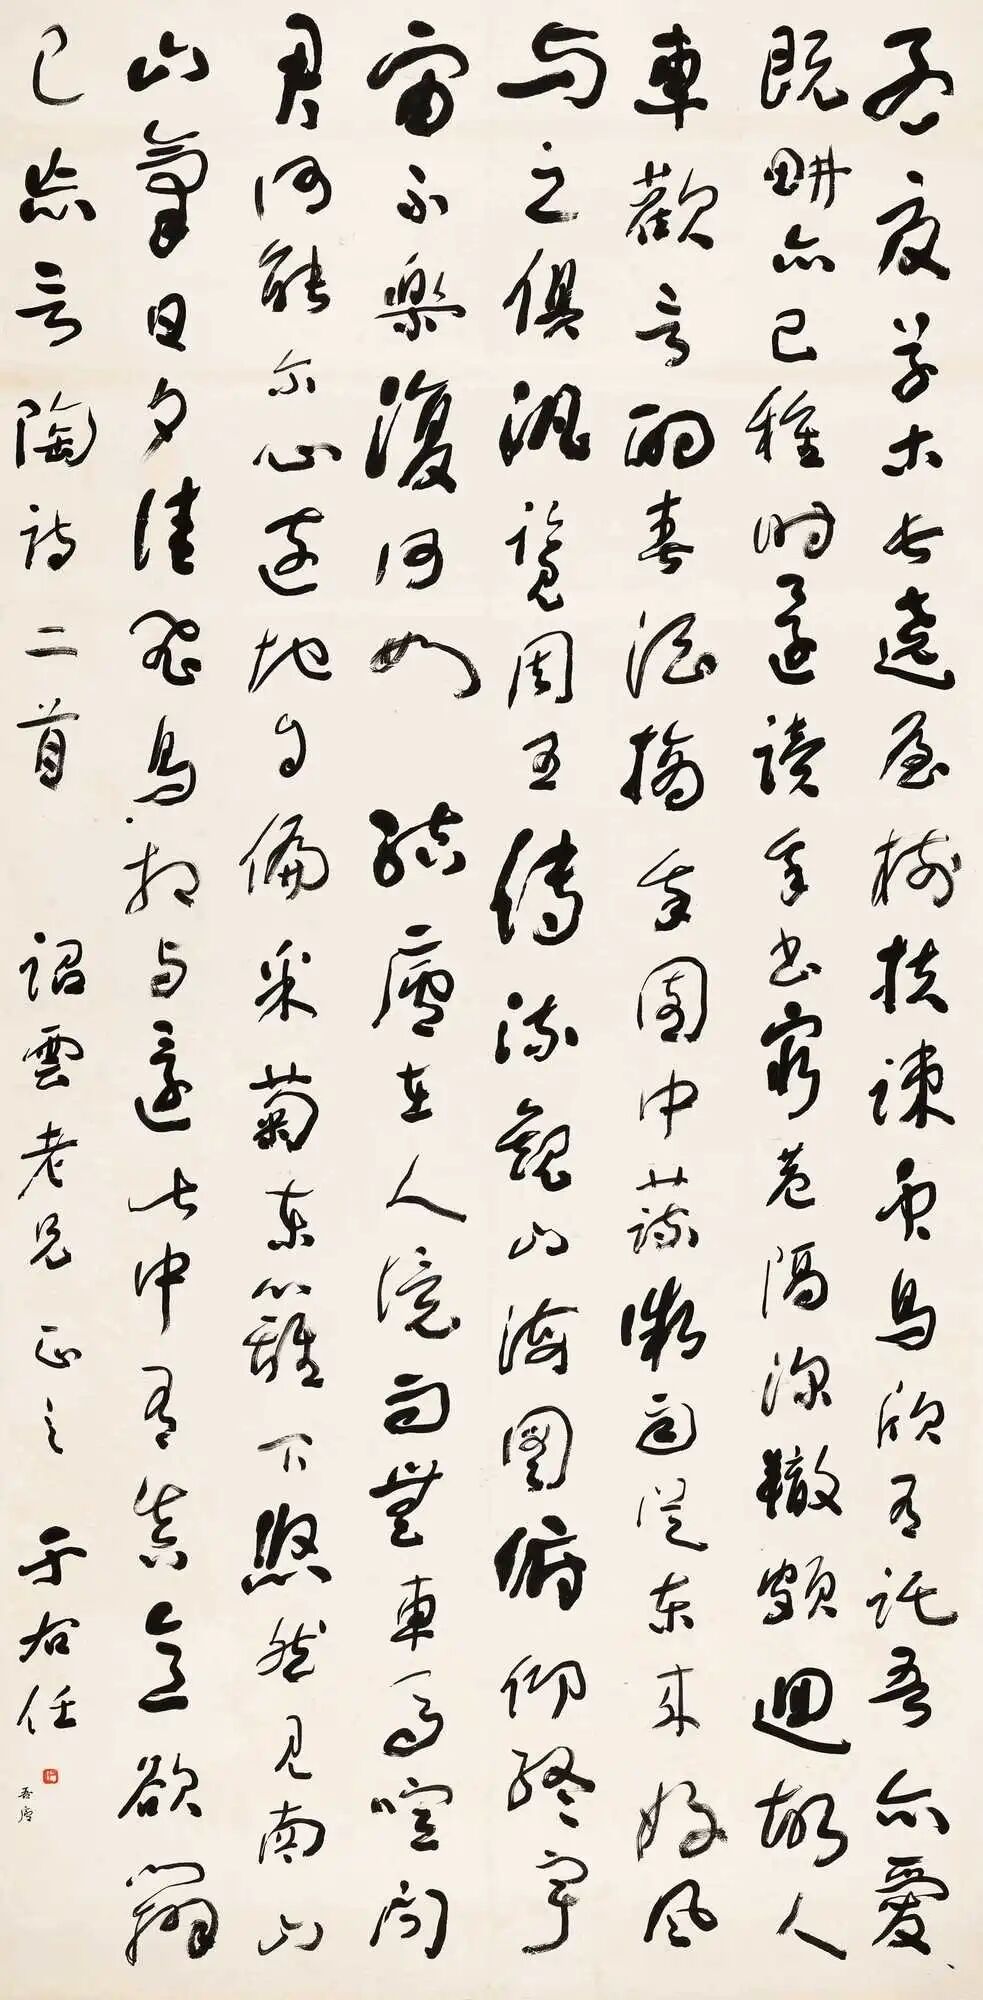 孟夏草木長遶屋樹扶疎眾鳥欣有託吾亦愛
既畊亦已種時還讀我書窮巷隔深轍頗迴故人
車歡言酌春酒摘我園中蔬微雨從東來好風
与之俱汎覽周王傳流觀山海圖俯仰終宇
宙不樂復何如 結廬在人境而無車馬喧問
君何能尔心遠地自偏采菊東籬下悠然見南山
山氣日夕佳飛鳥相与還此中有真意欲辯
已忘言陶詩二首 詔雲老兄正之 于右任
吾廬